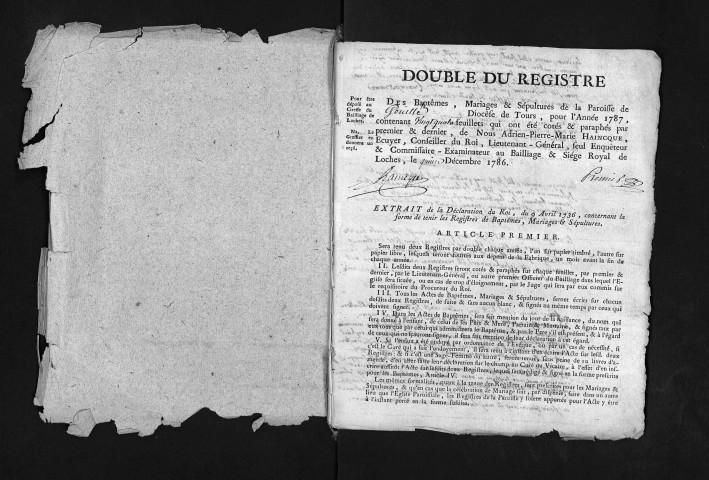 DOUBLE DU REGISTRE
Pour être
déposé au
Greffe du
Bailliage de
Loches.
Na. Le
Greffier en
donnera un
reçu.
DES Baptêmes, Mariages & Sépultures de la Paroisse de
Diocèse de Tours, pour l'Année 1787,
contenant feuillets qui ont été cotés & paraphés par
premier & dernier, de Nous Adrien-Pierre-Marie HAINCQUE,
Ecuyer, Conseiller du Roi, Lieutenant-Général, seul Enquêteur
& Commissaire-Examinateur au Bailliage & Siége Royal de
Loches, le Décembre 1786.
Haincque
Premier
EXTRAIT de la Déclaration du Roi, du 9 Avril 1736, concernant la
forme de tenir les Registres de Baptêmes, Mariages & Sépultures.
ARTICLE PREMIER.
Sera tenu deux Registres par double chaque année, l'un sur papier timbré, l'autre sur
papier libre, lesquels seront fournis aux dépens de la Fabrique, un mois avant la fin de
chaque année.
II. Lesdits deux Registres seront cotés & paraphés sur chaque feuillet, par premier &
dernier, par le Lieutenant-Général, ou autre premier Officier du Bailliage dans lequel l'E-
glise sera située, ou en cas de trop d'éloignement, par le Juge qui sera par eux commis sur
le requisitoire du Procureur du Roi.
III. Tous les Actes de Baptêmes, Mariages & Sépultures, seront écrits sur chacun
desdits deux Registres, de suite & sans aucun blanc, & signés au même temps par ceux qui
doivent signer.
IV. Dans les Actes de Baptêmes, sera fait mention du jour de la naissance, du nom qui
sera donné à l'enfant, de celui de ses Père & Mère, Parrain & Marraine, & signés tant par
eux tous que par celui qui administrera le Baptême, & par le Père s'il est présent, & à l'égard
de ceux qui ne sçauront signer, il sera fait mention de leur déclaration à cet égard.
V. Si l'enfant a été ondoyé par ordonnance de l'Evêque, ou par un cas de nécessité, si
c'est le Curé qui a fait l'ondoyement, il sera tenu à l'instant d'en écrire l'Acte sur lesd. deux
Registres; & si c'est une Sage-Femme ou autre, seront tenus, sous peine de 10 livres d'a-
mende, d'en aller faire leur déclaration sur le champ au Curé ou Vicaire, à l'effet d'en ins-
crire aussitôt l'Acte sur lesdits deux Registres, lequel sera rédigé & signé en la forme prescrite
pour les Baptêmes, Article IV.
Les mêmes formalités, quant à la tenue des Registres, sont prescrites pour les Mariages &
Sépultures, & qu'en cas que la célébration de Mariage soit, par dispense, faite dans un autre
lieu que l'Eglise Paroissiale, les Registres de la Paroisse y soient apportés pour l'Acte y être
à l'instant porté en la forme susdite.